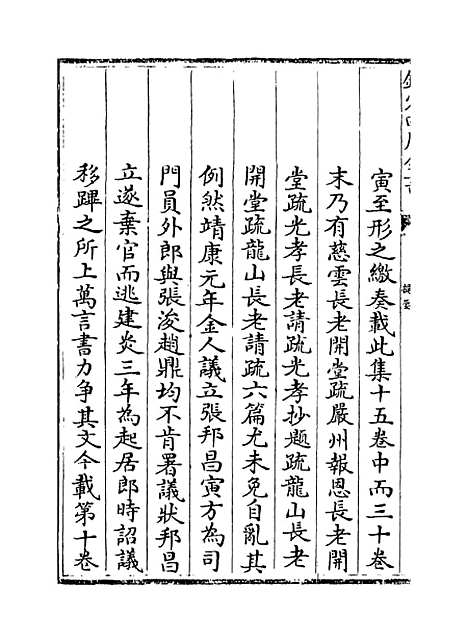 寅至形之繳奏載此集十五卷中而三十卷
末乃有慈雲長老開堂疏嚴州報恩長老開
堂疏光孝長老請疏光孝抄題疏龍山長老
開堂疏龍山長老請疏六篇尤未免自亂其
例然靖康元年金人議立張邦昌寅方為司
門員外郎與張浚趙鼎均不肯署議狀邦昌
立遂棄官而逃建炎三年為起居郎時詔議
移蹕之所上萬言書力争其文今載第十卷